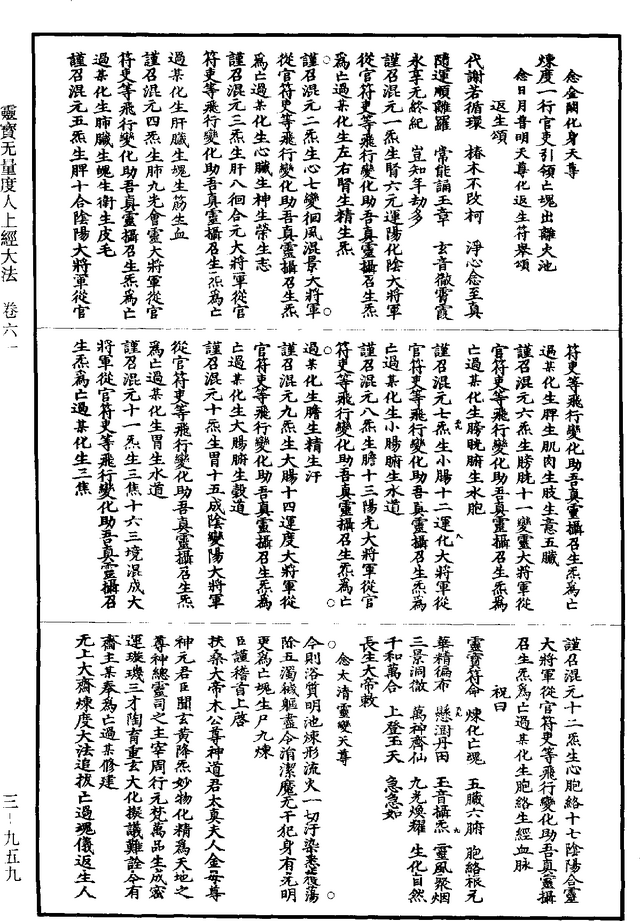 念金闕化身天尊
煉度一行官吏引領亡魂出離火池
念日月普明天尊化返生符舉頌
返生頌
代謝若循環　椿木不改柯　淨心念至真
隨運順離羅　常能誦玉章　玄音徹霄霞
永享无終紀　豈知年劫多
謹召混元一炁生腎六元運陽化陰大將軍
從官符吏等飛行變化助吾真靈攝召生炁
爲亡過某化生左右腎生精生炁
謹召混元二炁生心七變徊風混景大將軍
從官符吏等飛行變化助吾真靈攝召生炁
爲亡過某化生心臟生神生榮生志
謹召混元三炁生肝八徊合元大將軍從官
符吏等飛行變化助吾真靈攝召生炁爲亡
過某化生肝臟生魂生筋生血
謹召混元四炁生肺九先會靈大將軍從官
符吏等飛行變化助吾真靈攝召生炁爲亡
過某化生肺臟生魄生衛生皮毛
謹召混元五炁生脾十合陰陽大將軍從官
符吏等飛行變化助吾真靈攝召生炁爲亡
過某化生脾生肌肉生肢生意五臟
謹召混元六炁生膀胱十一變靈大將軍從
官符吏等飛行變化助吾真靈攝召生炁爲
亡過某化生膀胱腑生水胞
謹召混元七炁生小腸十二運化大將軍從
官符吏等飛行變化助吾真靈攝召生炁爲
亡過某化生小腸腑生水道
謹召混元八炁生膽十三陽先大將軍從官
符吏等飛行變化助吾真靈攝召生炁爲亡
過某化生膽生精生汗
謹召混元九炁生大腸十四運度大將軍從
官符吏等飛行變化助吾真靈攝召生炁爲
亡過某化生大腸腑生穀道
謹召混元十炁生胃十五成陰變陽大將軍
從官符吏等飛行變化助吾真靈攝召生炁
爲亡過某化生胃生水道
謹召混元十一炁生三焦十六三境混成大
將軍從官符吏等飛行變化助吾真靈攝召
生炁爲亡過某化生三焦
謹召混元十二炁生心胞絡十七陰陽合靈
大將軍從官符吏等飛行變化助吾真靈攝
召生炁爲亡過某化生心胞絡生經血脉
祝曰
靈寶符命　煉化亡魂　五臟六腑　胞絡根元
華精徧布　懸澍丹田　玉音攝炁　靈風聚烟
三景洞徹　萬神齊仙　九光煥耀　生化自然
千和萬合　上登玉天　急急如
長生大帝敕
念太清靈變天尊
今則浴質明池煉形流火一切汙染悉獲蕩
除五濁穢軀盡令消潔魔无干犯身有光明
更爲亡魂生尸九煉
臣謹稽首上啓
扶桑大帝木公尊神道君太真夫人金母尊
神元君臣聞玄黄降炁妙物化精爲天地之
尊神總靈司之主宰周行元梵萬品生成密
運璇璣三才陶育重玄大化擬議難詮今有
齋主某奉爲亡過某修建
无上大齋煉度大法追拔亡過魂儀返生人
靈寶无量度人上經大法　卷六一
三－九五九